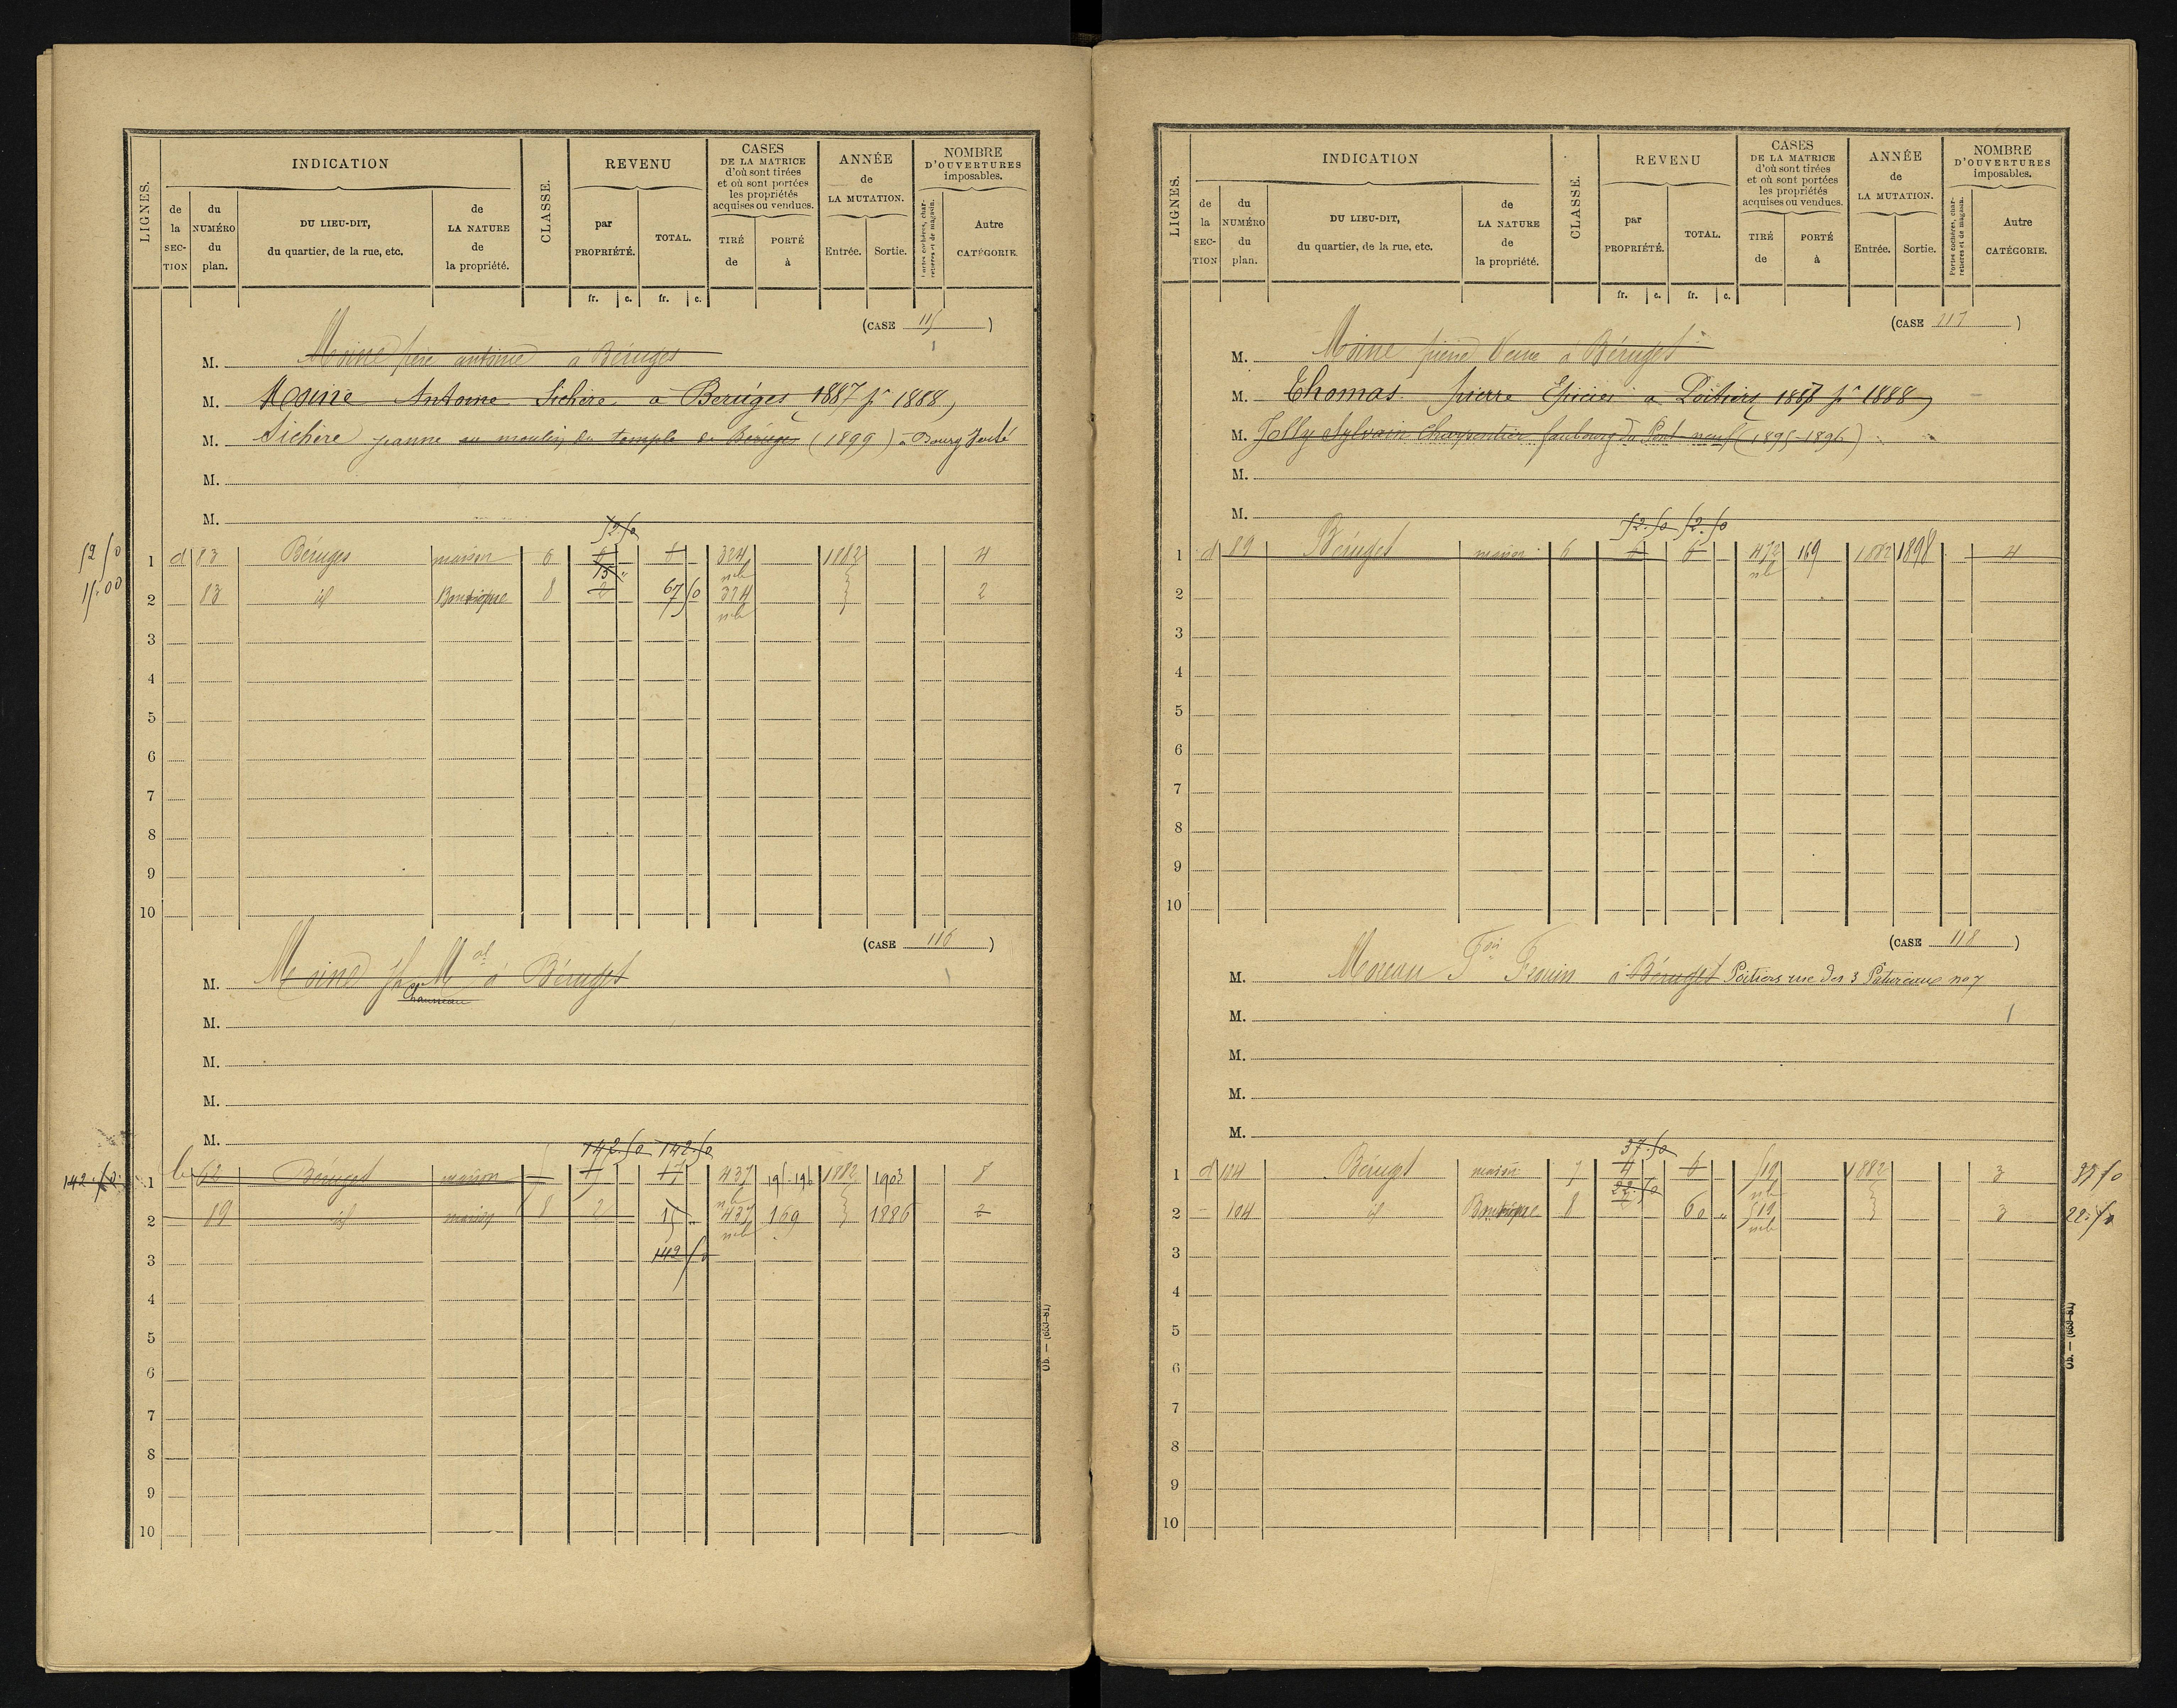 LIGNES.
INDICATION
de la SEC-TION
du NUMÉRO du plan.
DU LIEU-DIT, du quartier, de la rue, etc.
de LA NATURE de la propriété.
CLASSE.
REVENU
par PROPRIÉTÉ.
TOTAL.
fr. c. fr. c.
CASES DE LA MATRICE d'où sont tirées et où sont portées les propriétés acquises ou vendues.
TIRÉ de
PORTÉ à
ANNÉE de LA MUTATION.
Entrée. Sortie.
NOMBRE D'OUVERTURES imposables.
Portes cochères, charretières et de magasin.
Autre CATÉGORIE.
(CASE 115)
M. Moine père antoine à Béruges
M. Moine Antoine Sichère a Beruges 1887 pr 1888
M. Sichère jeanne au moulin du temple de Béruges (1899) à Bourg
M.
M.
52.50
52 50
1 d 83 Béruges maison 6 6 6 324 1882 4
15 "
15.00
2 83 id Boutique 8 2 67 50 324 2
3
4
5
6
7
8
9
10
(CASE 116)
M. Moine à Béruges
M.
M.
M.
M.
142.50 142.50
142.50
1 62 Béruges maison 17 437 195-196 1882 1903
2 89 id maison 8 2 15 437 169 1886 2
3 142 50
4
5
6
7
8
9
10
Ub. — (663-81)
LIGNES.
INDICATION
de la SEC-TION
du NUMÉRO du plan.
DU LIEU-DIT, du quartier, de la rue, etc.
de LA NATURE de la propriété.
CLASSE.
REVENU
par PROPRIÉTÉ.
TOTAL.
fr. c. fr. c.
CASES DE LA MATRICE d'où sont tirées et où sont portées les propriétés acquises ou vendues.
TIRÉ de
PORTÉ à
ANNÉE de LA MUTATION.
Entrée. Sortie.
NOMBRE D'OUVERTURES imposables.
Portes cochères, charretières et de magasin.
Autre CATÉGORIE.
(CASE 117)
M. Moine pierre Veuve à Béruges
M. Thomas pierre Epicier a Poitiers 1887 pr 1888
M. Jolly Sylvain Charpentier faubourg du Pont neuf (1895-1896)
M.
M.
52.50 52.50
1 d 89 Béruges maison 6 6 6 472 169 1882 1898 4
2
3
4
5
6
7
8
9
10
(CASE 118)
M. Moreau à Béruges Poitiers rue des 3 no 7
M.
M.
M.
M.
37.50
1 d 104 Béruges maison 7 4 6 519 1882 3 37 50
22.50
2 104 id Boutique 8 60 " 519 3 22.50
3
4
5
6
7
8
9
10
Ub. — (663-81)